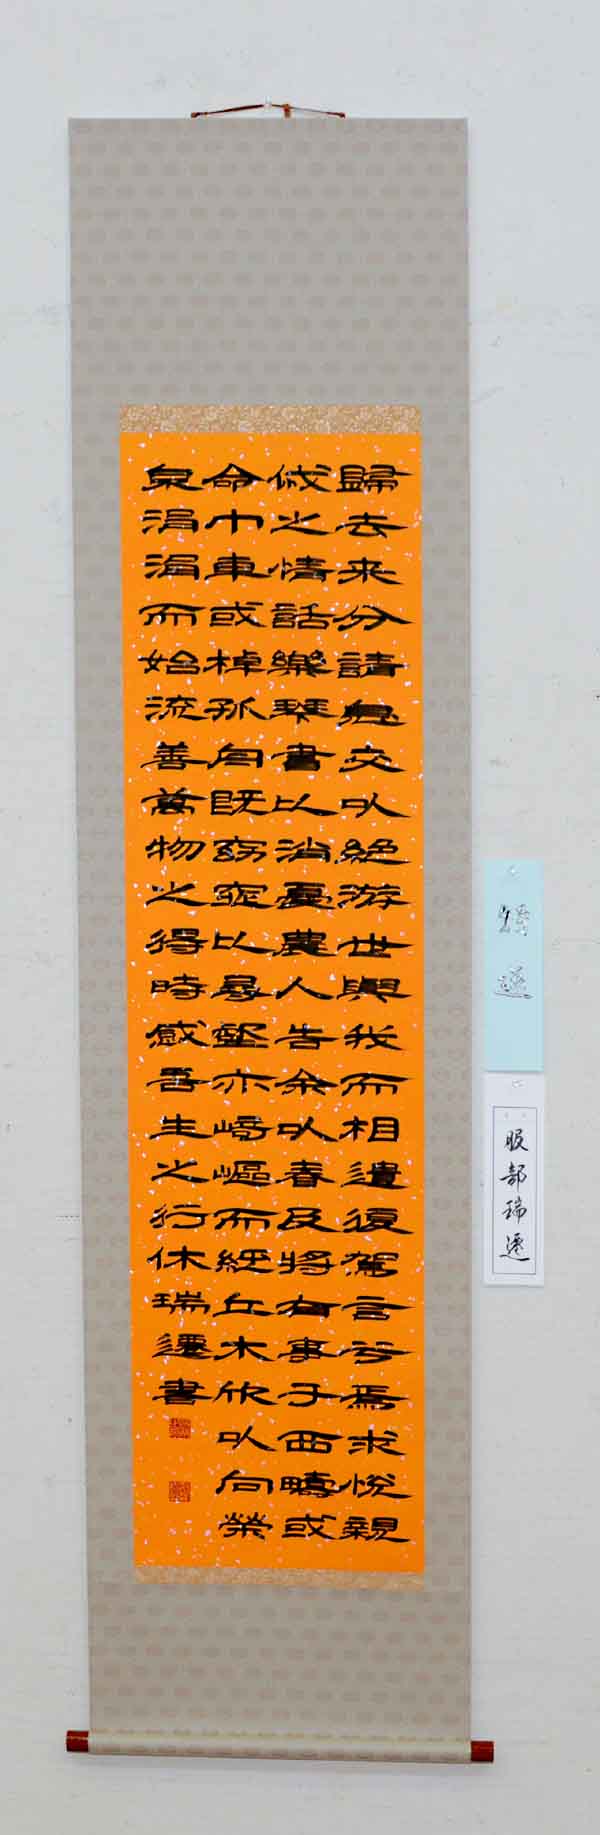 歸去来兮請息交以絶游世與我而相遺復駕言兮焉求悦親
戚之情話樂琴書以消憂農人告余以春及將有事于西疇或
命巾車或棹孤舟既窈窕以尋壑亦崎嶇而經丘木欣以向榮
泉涓涓而始流善萬物之得時感吾生之行休瑞遷書
服部瑞遷